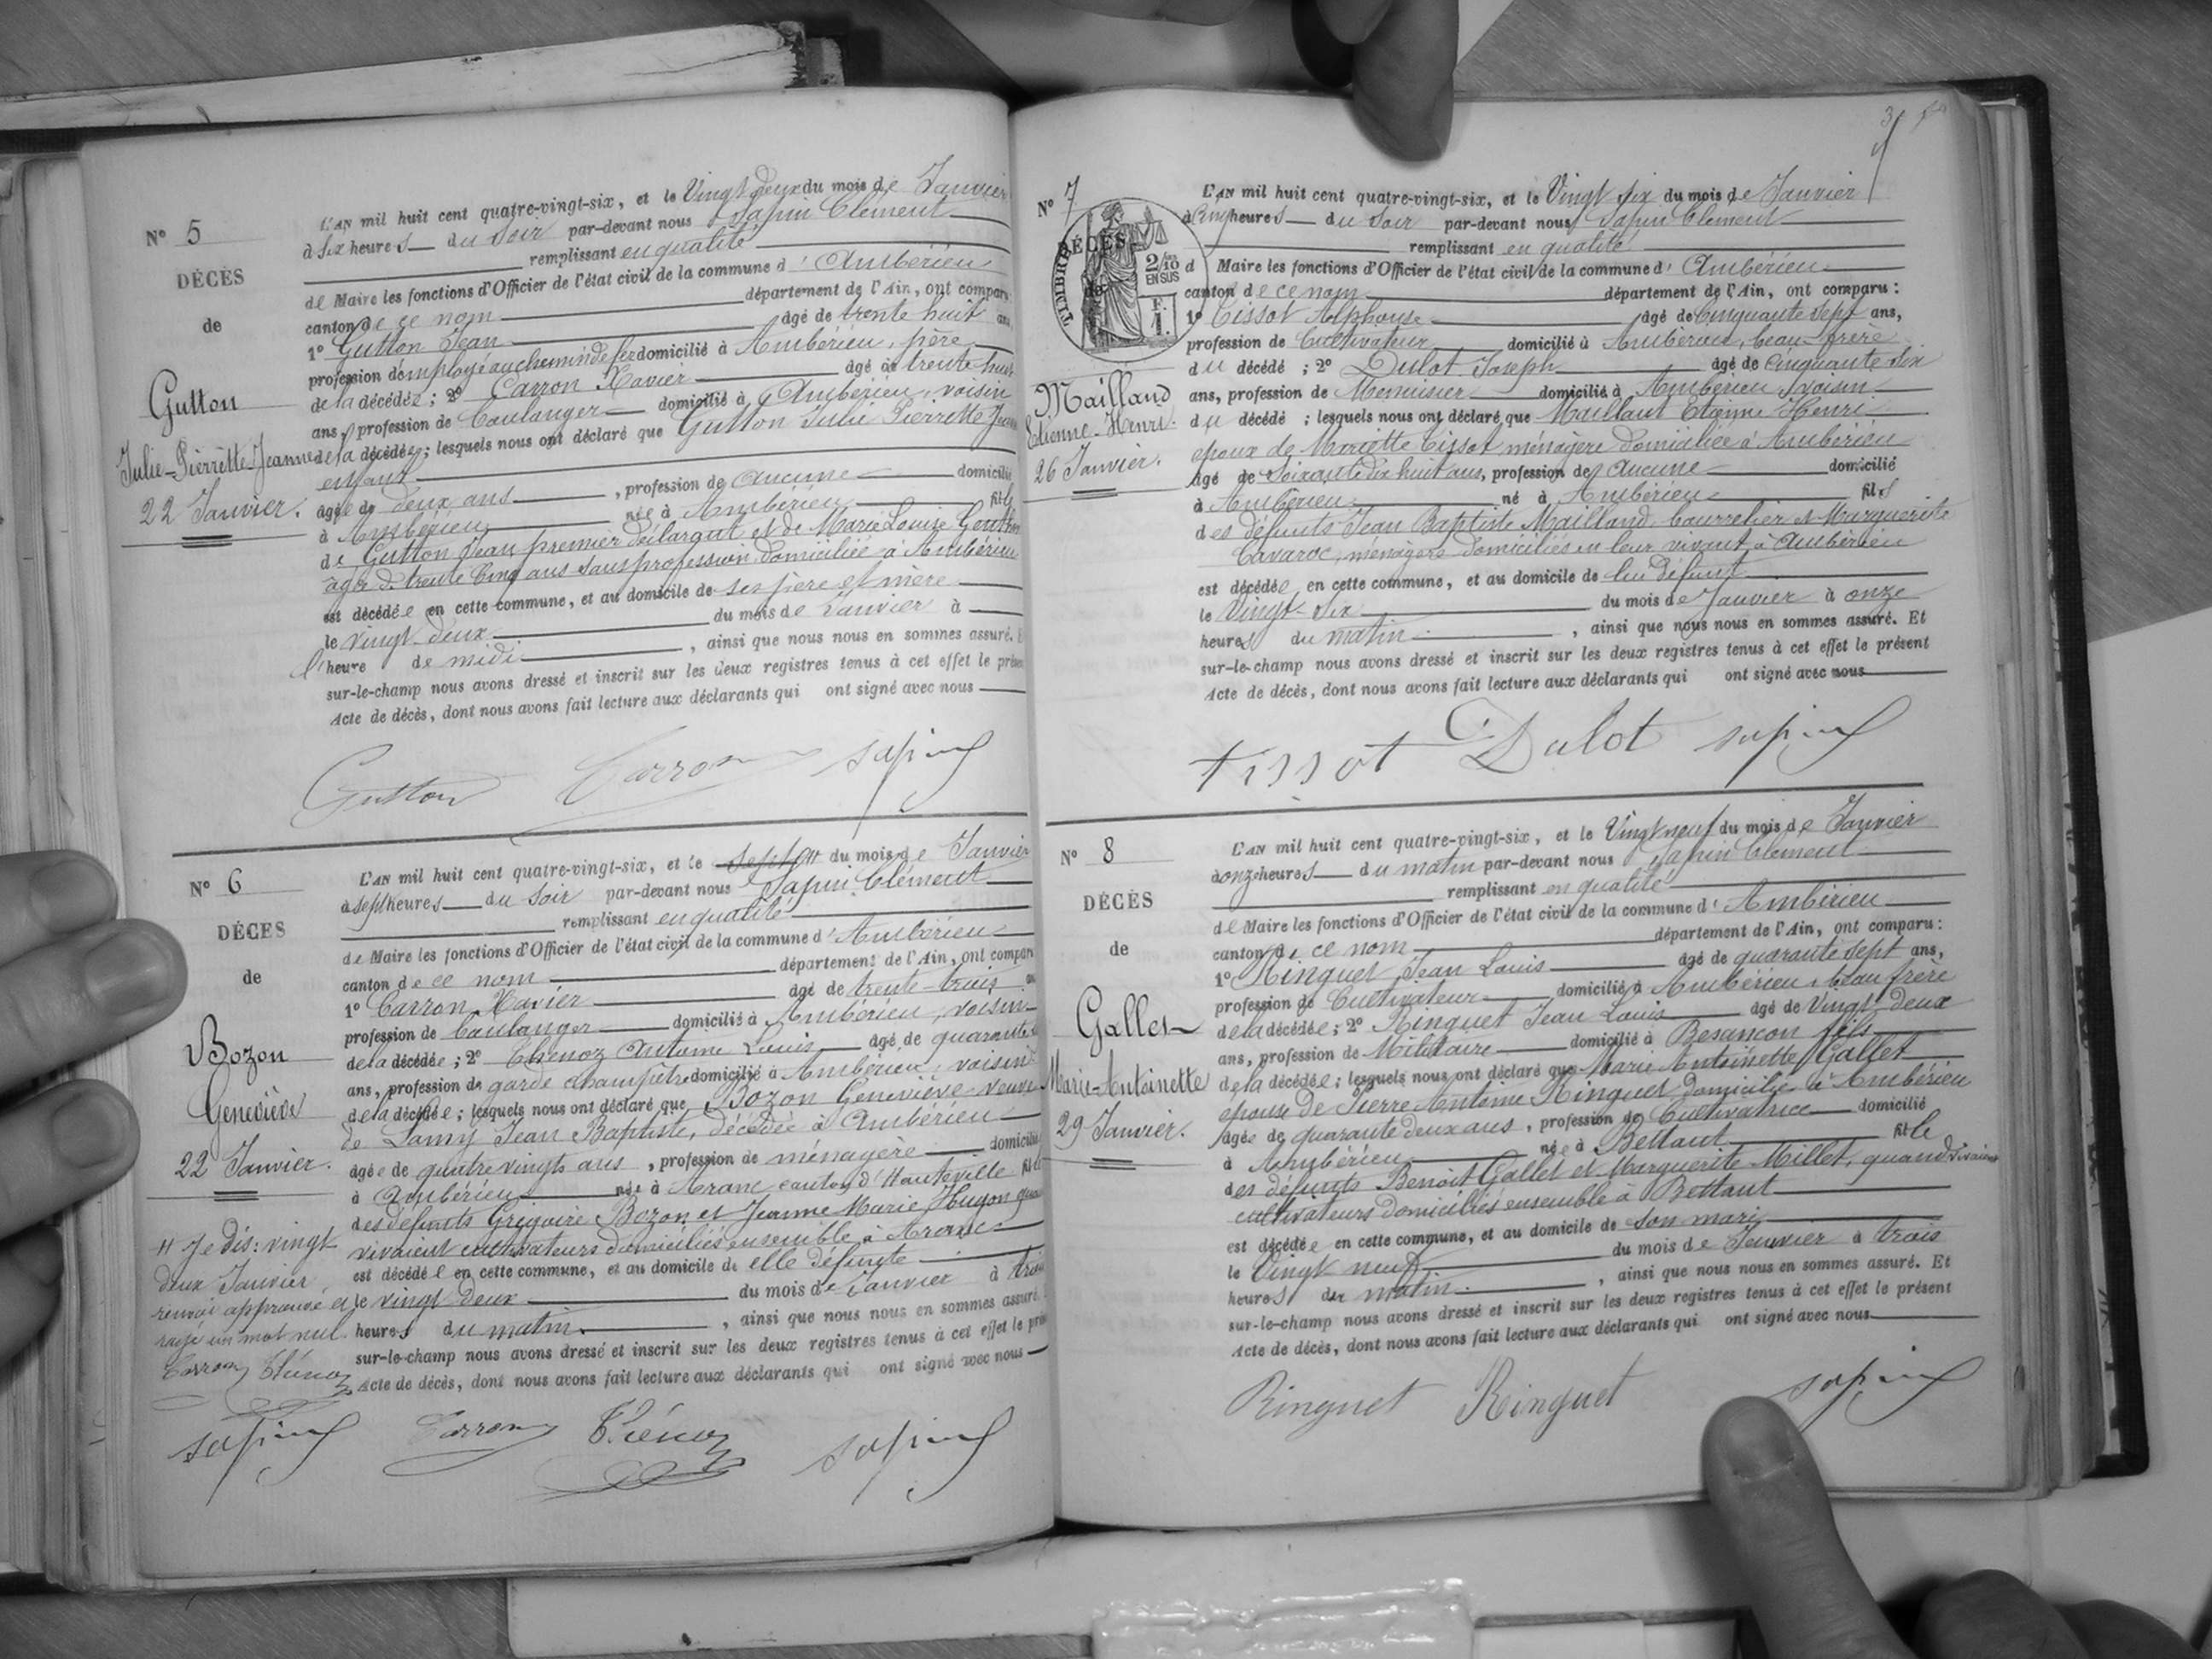 N° 5
DÉCÈS
de
Gutton
Julie-Pierrette-Jeanne
22 Janvier.
L'AN mil huit cent quatre-vingt-six, et le Vingt deux du mois de Janvier
à six heures du soir par-devant nous Sapin Clément
remplissant en qualité
de Maire les fonctions d'Officier de l'état civil de la commune d'Ambérieu
canton de ce nom département de l'Ain, ont comparu
1° Gutton Jean âgé de trente huit ans,
profession d'employé au chemin de fer domicilié à Ambérieu, père
de la décédée ; 2° Carron Xavier âgé de trente huit
ans, profession de boulanger domicilié à Ambérieu, voisin
de la décédée ; lesquels nous ont déclaré que Gutton Julie Pierrette Jeanne
enfant
âgée de deux ans, profession de aucune domicilié
à Ambérieu née à Ambérieu fille
de Gutton Jean premier déclarant et de Marie Louise
âgée de trente cinq ans sans profession domiciliée à Ambérieu
est décédée en cette commune, et au domicile de ses père et mère
le vingt deux du mois de Janvier à
l'heure de midi, ainsi que nous nous en sommes assuré. Et
sur-le-champ nous avons dressé et inscrit sur les deux registres tenus à cet effet le présent
Acte de décès, dont nous avons fait lecture aux déclarants qui ont signé avec nous
Gutton Carron Sapin
N° 6
DÉCÈS
de
Bozon
Geneviève
22 Janvier.
L'AN mil huit cent quatre-vingt-six, et le sept du mois de Janvier
à sept heures du soir par-devant nous Sapin Clément
remplissant en qualité
de Maire les fonctions d'Officier de l'état civil de la commune d'Ambérieu
canton de ce nom département de l'Ain, ont comparu
1° Carron Xavier âgé de trente-trois
profession de boulanger domicilié à Ambérieu, voisin
de la décédée ; 2° Thenoz Antoine Louis âgé de quarante
ans, profession de garde champêtre domicilié à Ambérieu, voisin
de la décédée ; lesquels nous ont déclaré que Bozon Geneviève veuve
de Lamy Jean Baptiste, décédée à Ambérieu
âgée de quatre vingts ans, profession de ménagère domicilié
à Ambérieu née à Aranc canton d'Hauteville fille
des défunts Grégoire Bozon et Jeanne Marie Hugon quand
vivaient cultivateurs domiciliés ensemble à Aranc
est décédée en cette commune, et au domicile de elle défunte
le vingt deux du mois de Janvier à trois
heures du matin, ainsi que nous nous en sommes assuré.
sur-le-champ nous avons dressé et inscrit sur les deux registres tenus à cet effet le présent
Acte de décès, dont nous avons fait lecture aux déclarants qui ont signé avec nous
Je dis : vingt
deux Janvier
renvoi approuvé et
rayé un mot nul.
Carron Thénoz
Sapin Carron Thénoz Sapin
N° 7
TIMBRE
2/10
EN SUS
F.
1.
DÉCÈS
de
Mailland
Etienne-Henri.
26 Janvier.
L'AN mil huit cent quatre-vingt-six, et le Vingt six du mois de Janvier
à cinq heures du soir par-devant nous Sapin Clément
remplissant en qualité
d Maire les fonctions d'Officier de l'état civil de la commune d'Ambérieu
canton de ce nom département de l'Ain, ont comparu :
1° Tissot Alphonse âgé de cinquante sept ans,
profession de Cultivateur domicilié à Ambérieu, beau-frère
du décédé ; 2° Dulot Joseph âgé de cinquante six
ans, profession de Menuisier domicilié à Ambérieu, voisin
du décédé ; lesquels nous ont déclaré que Maillant Etienne Henri
époux de Mariette Tissot ménagère domiciliée à Ambérieu
âgé de soixante dix huit ans, profession de aucune domicilié
à Ambérieu né à Ambérieu fils
des défunts Jean Baptiste Mailland bourrelier et Marguerite
Cavaroc, ménagère domiciliés en leur vivant à Ambérieu
est décédé en cette commune, et au domicile de lui défunt
le Vingt-six du mois de Janvier à onze
heures du matin, ainsi que nous nous en sommes assuré. Et
sur-le-champ nous avons dressé et inscrit sur les deux registres tenus à cet effet le présent
Acte de décès, dont nous avons fait lecture aux déclarants qui ont signé avec nous
tissot Dulot Sapin
N° 8
DÉCÈS
de
Gallet
Marie-Antoinette
29 Janvier.
L'AN mil huit cent quatre-vingt-six, et le Vingt neuf du mois de Janvier
à onze heures du matin par-devant nous Sapin Clément
remplissant en qualité
de Maire les fonctions d'Officier de l'état civil de la commune d'Ambérieu
canton de ce nom département de l'Ain, ont comparu :
1° Ringuet Jean Louis âgé de quarante sept ans,
profession de Cultivateur domicilié à Ambérieu, beau frère
de la décédée ; 2° Ringuet Jean Louis âgé de vingt deux
ans, profession de Militaire domicilié à Besançon fils
de la décédée ; lesquels nous ont déclaré que Marie Antoinette Gallet
épouse de Pierre Antoine Ringuet domicilié à Ambérieu
âgée de quarante deux ans, profession de Cultivatrice domicilié
à Ambérieu née à Bettant fille
des défunts Benoit Gallet et Marguerite Millet, quand vivaient
cultivateurs domiciliés ensemble à Bettant
est décédée en cette commune, et au domicile de son mari
le Vingt neuf du mois de Janvier à trois
heures du matin, ainsi que nous nous en sommes assuré. Et
sur-le-champ nous avons dressé et inscrit sur les deux registres tenus à cet effet le présent
Acte de décès, dont nous avons fait lecture aux déclarants qui ont signé avec nous
Ringuet Ringuet Sapin